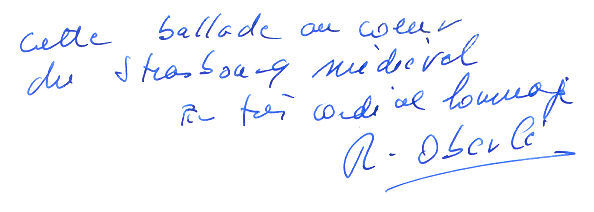 cette ballade au coeur
du Strasbourg médiéval
En très cordial hommage
R. Oberlé